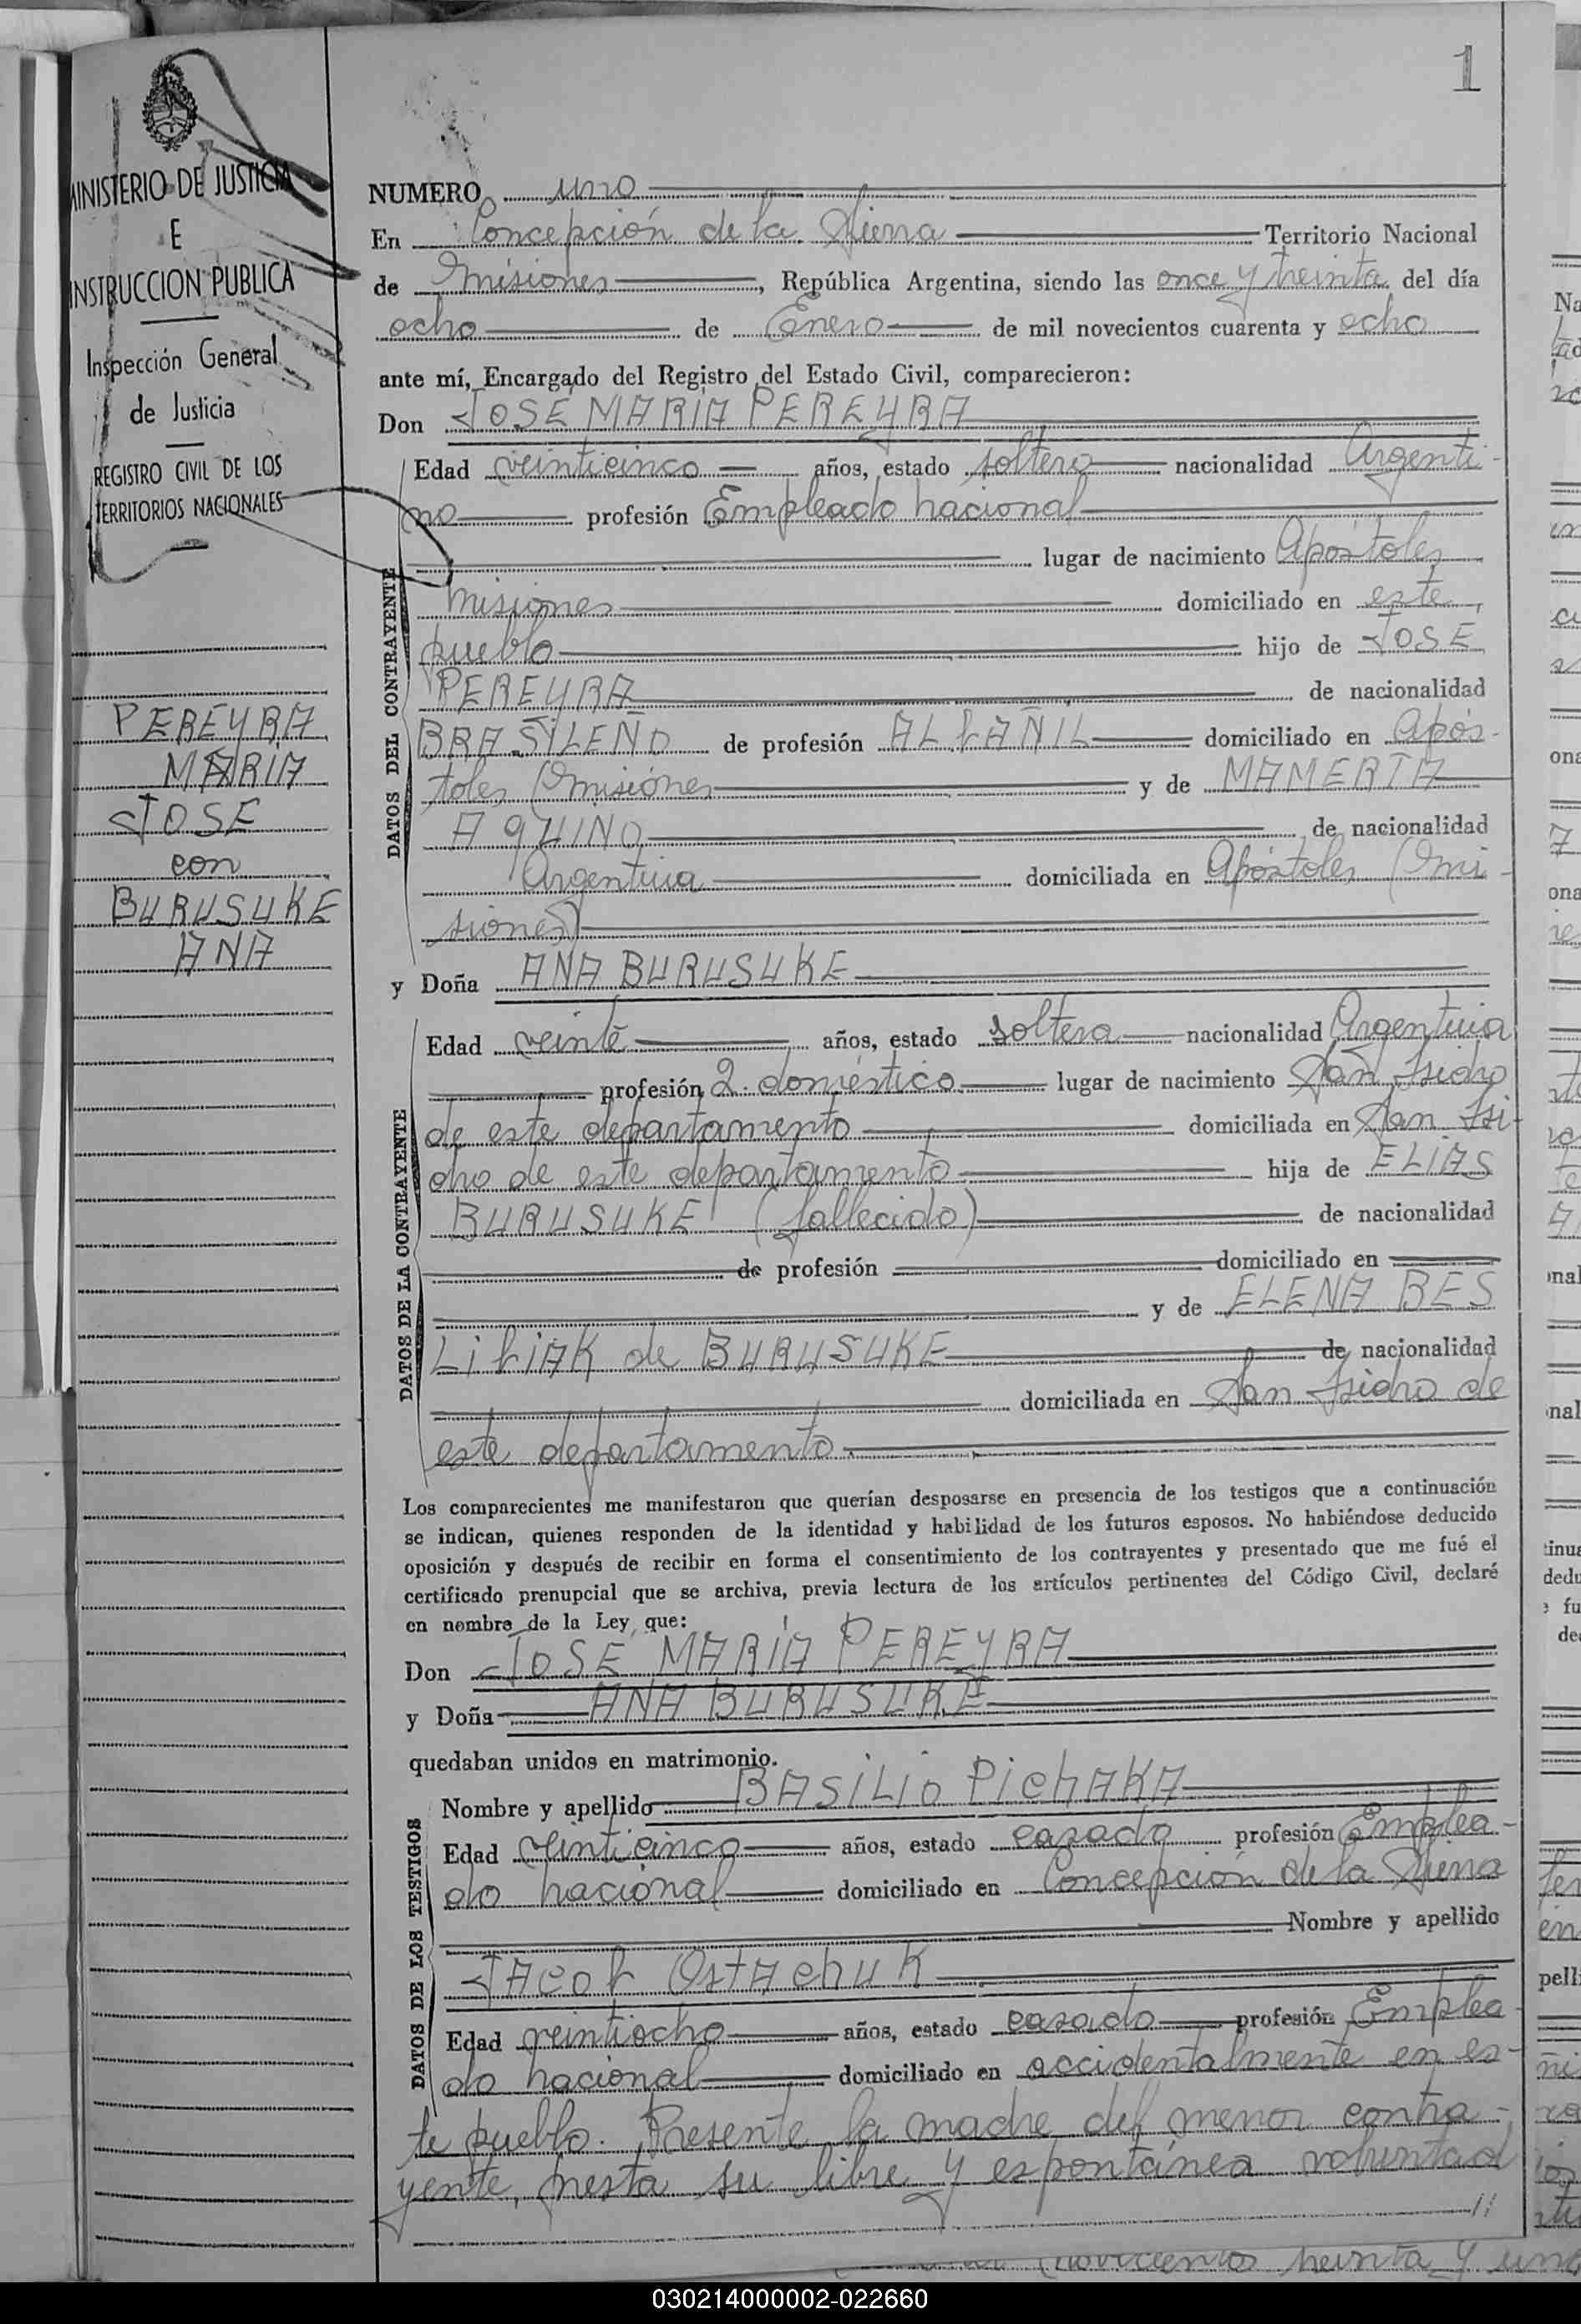 1
MINISTERIO DE JUSTICIA
E
INSTRUCCION PUBLICA
Inspección General
de Justicia
REGISTRO CIVIL DE LOS
TERRITORIOS NACIONALES
PEREYRA
MARIA
JOSE
con
BURUSUKE
ANA
NUMERO uno
En Concepción de la Sierra Territorio Nacional
de Misiones, República Argentina, siendo las once y treinta del día
ocho de Enero de mil novecientos cuarenta y ocho
ante mí, Encargado del Registro del Estado Civil, comparecieron:
Don JOSÉ MARÍA PEREYRA
DATOS DEL CONTRAYENTE
Edad veinticinco años, estado soltero nacionalidad Argenti-
no profesión Empleado nacional
lugar de nacimiento Apóstoles
Misiones domiciliado en este
pueblo hijo de JOSÉ
PEREYRA de nacionalidad
BRASILEÑO de profesión ALBAÑIL domiciliado en Após-
toles (Misiones y de MAMERTA
AQUINO de nacionalidad
Argentina domiciliada en Apóstoles (Mi-
siones)
y Doña ANA BURUSUKE
DATOS DE LA CONTRAYENTE
Edad veinte años, estado soltera nacionalidad Argentina
profesión Q. doméstico lugar de nacimiento San Isidro
de este departamento domiciliada en San Isi-
dro de este departamento hija de ELÍAS
BURUSUKE (fallecido) de nacionalidad
de profesión domiciliado en
y de ELENA BES
LibiAK de BURUSUKE de nacionalidad
domiciliada en San Isidro de
este departamento
Los comparecientes me manifestaron que querían desposarse en presencia de los testigos que a continuación
se indican, quienes responden de la identidad y habilidad de los futuros esposos. No habiéndose deducido
oposición y después de recibir en forma el consentimiento de los contrayentes y presentado que me fué el
certificado prenupcial que se archiva, previa lectura de los artículos pertinentes del Código Civil, declaré
en nombre de la Ley, que:
Don JOSÉ MARÍA PEREYRA
y Doña ANA BURUSUKE
quedaban unidos en matrimonio.
DATOS DE LOS TESTIGOS
Nombre y apellido BASILIO PichAKA
Edad veinticinco años, estado casado profesión Emplea-
do nacional domiciliado en Concepción de la Sierra
Nombre y apellido
JAcob OstAchuK
Edad veintiocho años, estado casado profesión Emplea-
do nacional domiciliado en accidentalmente en es-
te pueblo. Presente la madre del menor contra-
yente, presta su libre y espontánea voluntad
//
novecientos treinta y uno
030214000002-022660